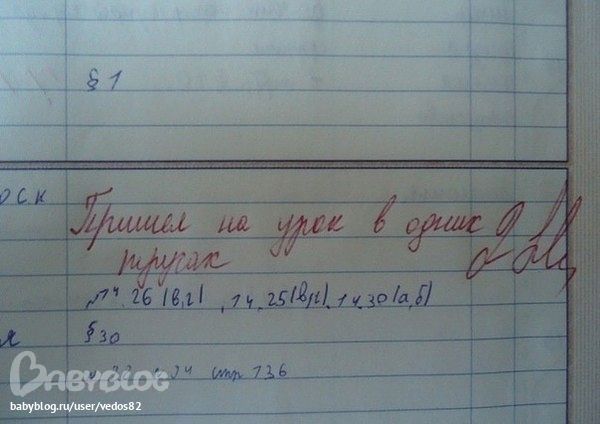 § 1
оск
Пришел на урок в одних
трусах
2
№14.26(в,г), 14.25(в,г), 14.30(а,б)
я
§ 30
стр 136
BABYBLOG
babyblog.ru/user/vedos82